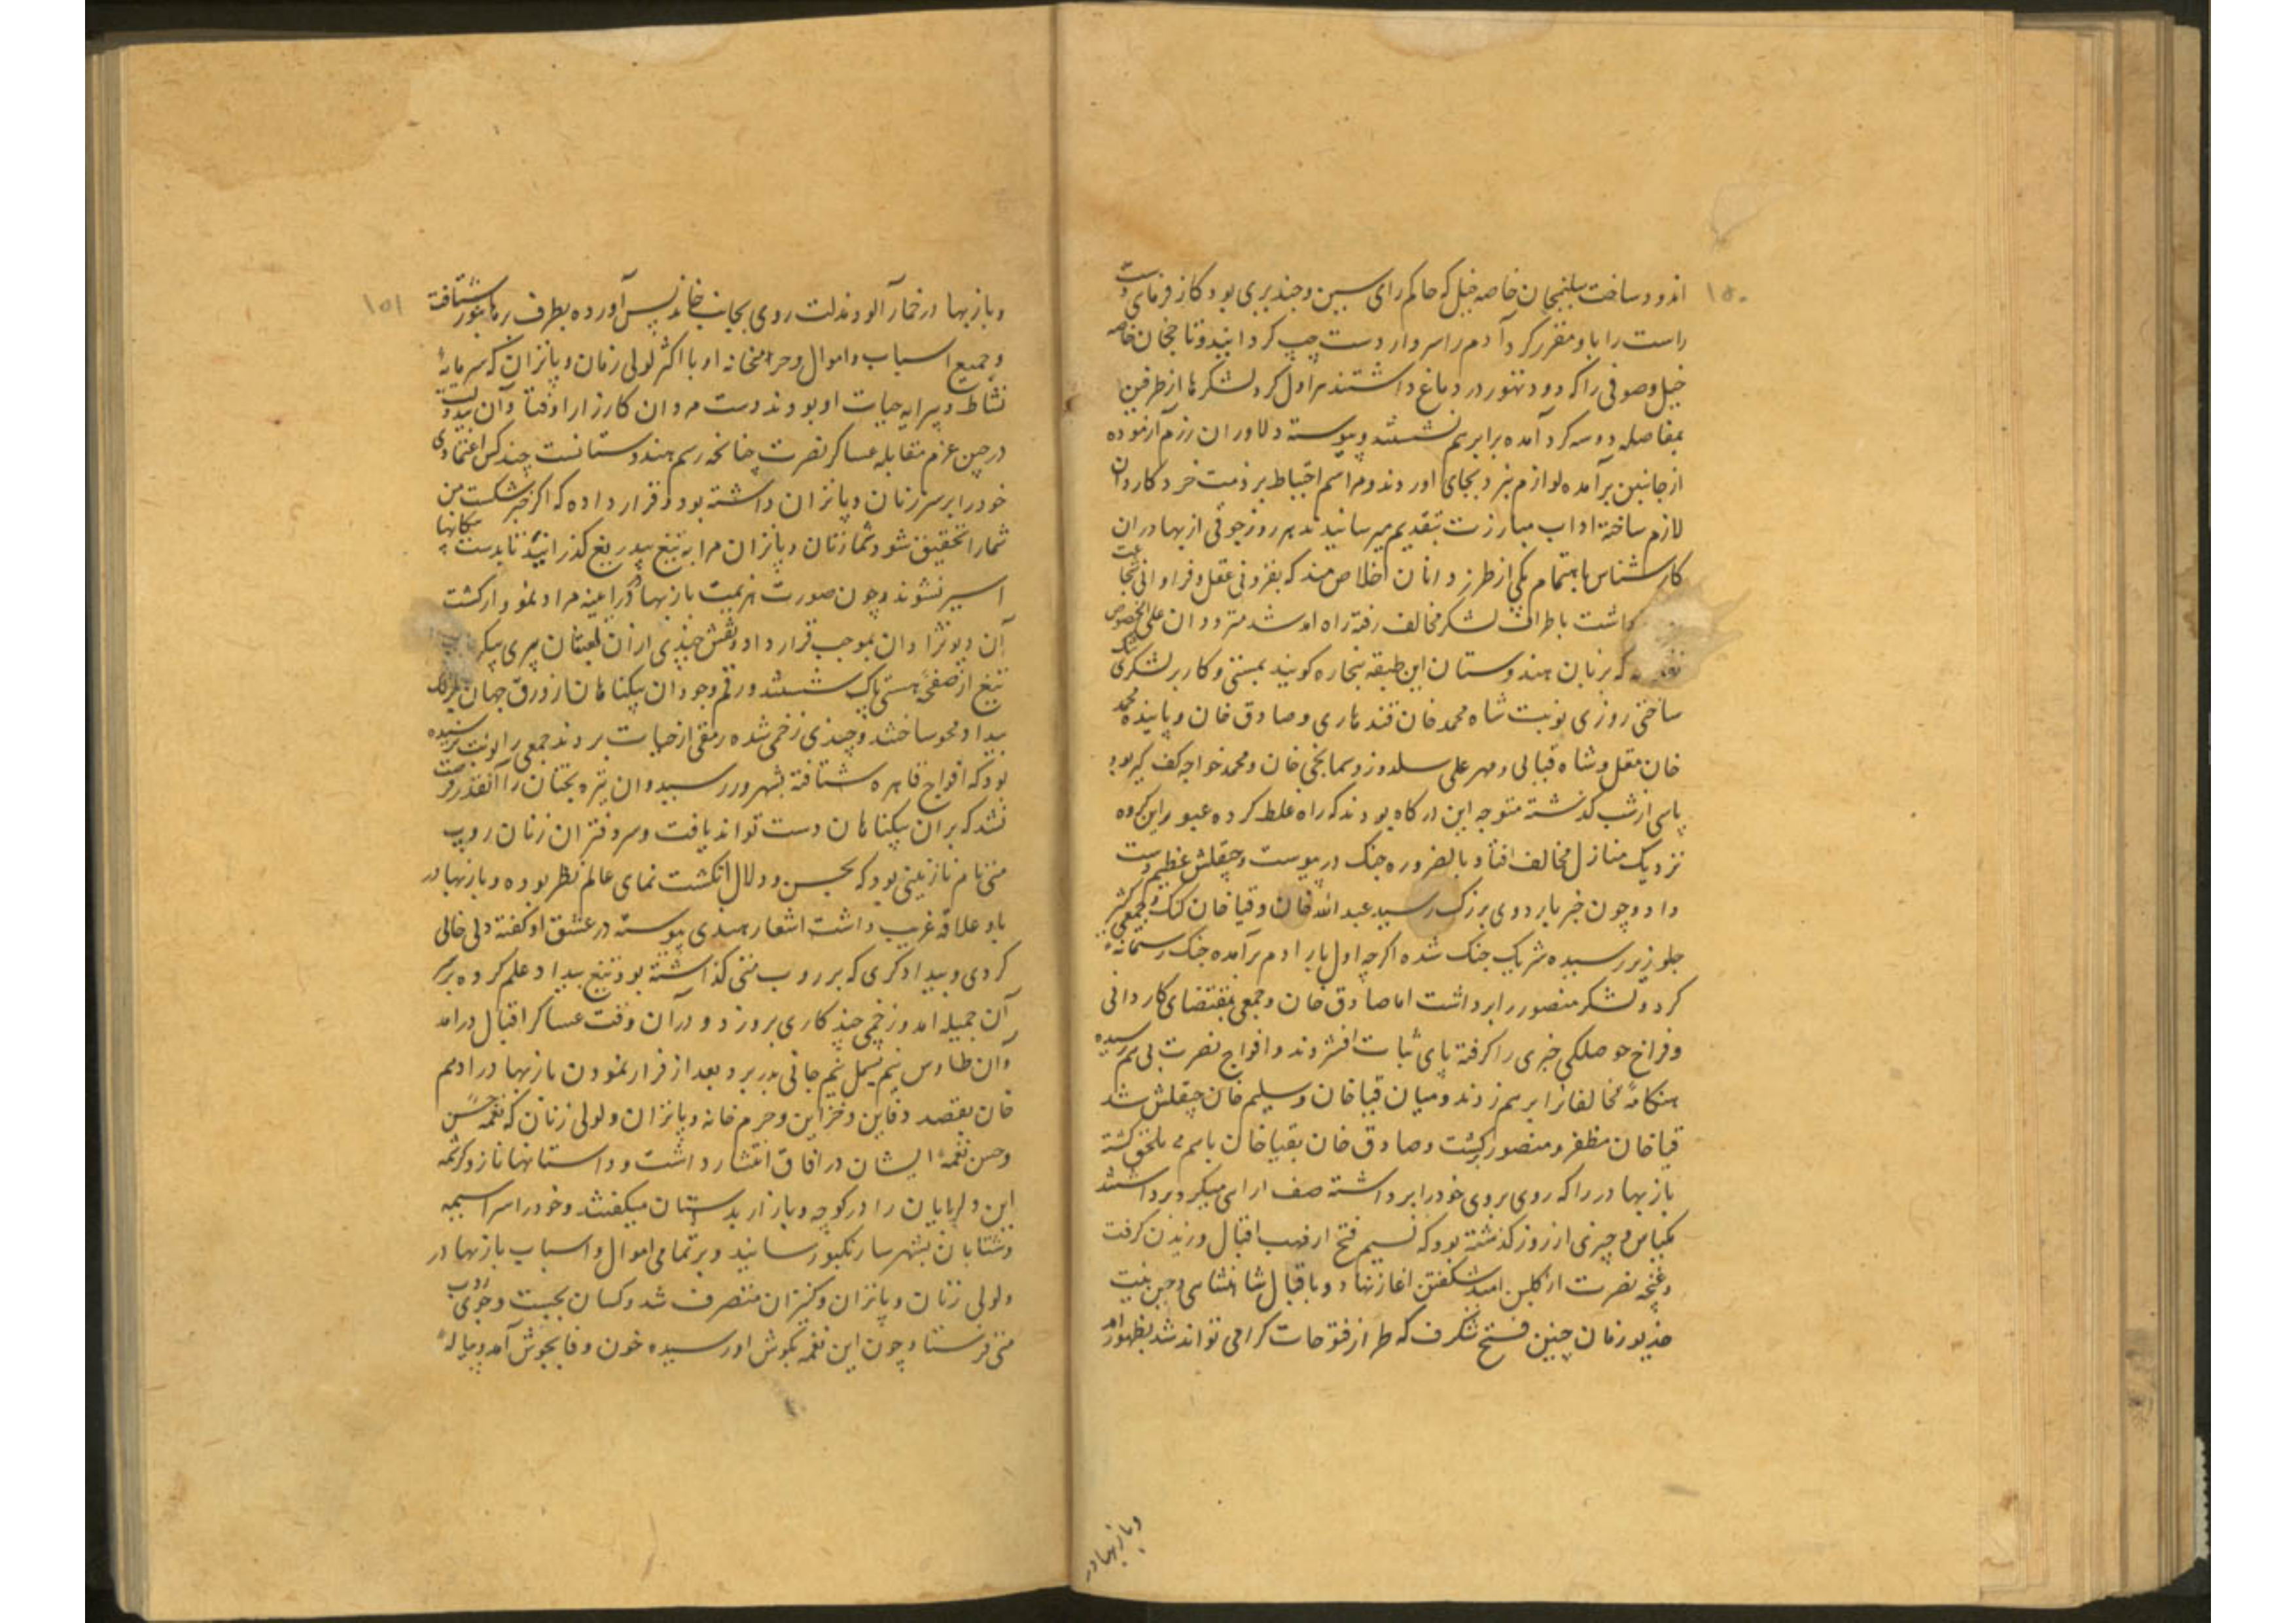 ۱۵۰
اندود ساخت سلیمخان خاصه خیل که حاکم رای سین و چندیری بود کارفرمای دست
راست را باو مقرر کرد آدم را سردار دست چپ کردانید و تاجخان خاصه
خیل و صوفی را که دود تهور در دماغ داشتند هراول کرد لشکرها از طرفین
بفاصله دو سه کرد آمده برابر هم نشستند و پیوسته دلاوران رزم آزموده
از جانبین برآمده لوازم نبرد بجای اوردند و مراسم احتیاط بر ذمت خرد کاردان
لازم ساخته اداب مبارزت بتقدیم میرسانیدند هر روز جوقی از بهادران
کارشناس باهتمام یکی از طرزدانان اخلاص مند که بفزونی عقل و فراوانی شجاعت
داشت باطراف لشکر مخالف رفته راه امد شد مترددان علی الخصوص
که بزبان هندوستان این طبقه بنجاره کویند بستی و کار بر لشکری تنک
ساختی روزی نوبت شاه محمد خان قندهاری و صادق خان و پاینده محمد
خان مغل و شاه قبالی و مهر علی سلدوز و سمانجی خان و محمد خواجه کف کیر بود
پاسی از شب کذشته متوجه این درکاه بودند که راه غلط کرده عبور این کروه
نزدیک منازل مخالف افتاد بالضروره جنک درپیوست و چقلش عظیم دست
داد و چون خبر باردوی بزرک رسید عبدالله خان و قیاخان کنک و جمعی کثیر
جلو ریز رسیده شریک جنک شده اکرچه اول بار ادم برآمده جنک رستمانه
کرد و لشکر منصور را برداشت اما صادق خان و جمعی بمقتضای کاردانی
و فراخ حوصلکی خبری را کرفته پای ثبات افشردند و افواج نصرت پی هم رسیده
هنکامه مخالفانرا برهم زدند و میان قیاخان و سلیم خان چقلش شد
قیاخان مظفر و منصور کشت و صادق خان بقیاخان باهم ملحق کشته
بازبهادر را که روی بروی خود را برداشته صف ارایی میکرد برداشتند
یکپاس و چیزی از روز کذشته بود که نسیم فتح از مهب اقبال وزیدن کرفت
و غنچه نصرت از کلبن امید شکفتن اغاز نهاد و باقبال شاهنشاهی و حسن نیت
خدیو زمان چنین فتح شکرف که طراز فتوحات کرامی تواند شد بظهور امد
و بازبهادر
۱۵۱
و بازبهادر خمارآلود مذلت روی بجانب خاندیس آورده بطرف برهانپور شتافت
و جمیع اسباب و اموال و حرمخانه او با اکثر لولی زنان و پاتران که سرمایه
نشاط و پیرایه حیات او بودند دست مردان کارزار افتاد و آن بیدولت
در حین عزم مقابله عساکر نصرت چنانچه رسم هندوستانست چند کس اعتمادی
خود را بر سر زنان و پاتران داشته بود و قرار داده که اکر خبر شکست من
شما را تحقیق شود شما زنان و پاتران مرا به تیغ بیدریغ کذرانید تا بدست بیکانها
اسیر نشوند و چون صورت هزیمت بازبهادر در آینه مراد نمودار کشت
آن دیونژادان بموجب قرارداد نقش چندی از آن لعبتان پری پیکر
تیغ از صفحه هستی پاک شستند و رقم وجود ان بیکناهان از ورق جهان بکزلک
بیداد محو ساختند و چندی زخمی شده رمقی از حیات بردند جمعی را نوبت نرسیده
بود که افواج قاهره شتافته بشهر در رسید و ان تیره بختان را آنقدر فرصت
نشد که بران بیکناهان دست تواند یافت و سر دفتر ان زنان روپ
متی نام نازنینی بود که بحسن و دلال انکشت نمای عالم نظر بوده و بازبهادر
باو علاقه غریب داشت اشعار هندی پیوسته در عشق او کفته دلی خالی
کردی و بیدادکری که بر روپ متی کذاشته بود تیغ بیداد علم کرده بر سر
آن جمیله امد و زخمی چند کاری برو زد و درآن وقت عساکر اقبال درامد
و آن طاوس نیم بسمل نیم جانی بدر برد بعد از فرار نمودن بازبهادر ادهم
خان بقصد دفاین و خزاین و حرم خانه و پاتران و لولی زنان که نغمه حسن
و حسن نغمه ایشان در افاق انتشار داشت و داستانها ناز و کرشمه
این دلربایان را در کوچه و بازار بدستان میکفتند و خود را سراسیمه
و شتابان بشهر سارنکپور رسانید و بر تمامی اموال و اسباب بازبهادر
و لولی زنان و پاتران و کنیزان متصرف شد و کسان بجست و جوی روپ
متی فرستاد و چون این نغمه بکوش او رسیده خون وفا بجوش آمد و پیاله